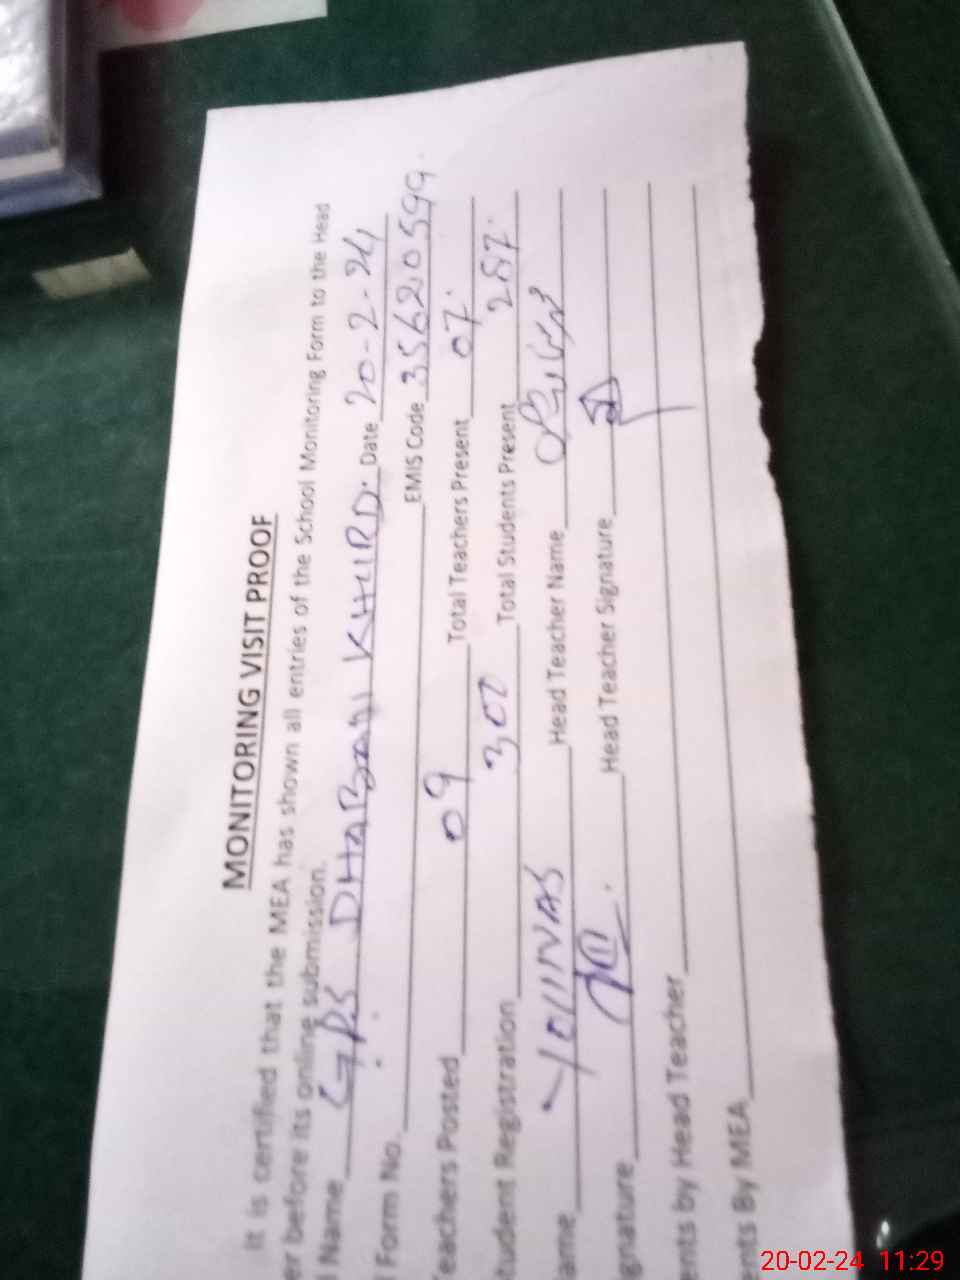 MONITORING VISIT PROOF
It is certified that the MEA has shown all entries of the School Monitoring Form to the Head
er before its online submission.
l Name GPS DHABAN KHURD. Date 20-2-24
Form No. EMIS Code 35620599
eachers Posted 09 Total Teachers Present 07
tudent Registration 302 Total Students Present 287
ame YOUNAS Head Teacher Name
gnature Head Teacher Signature
ents by Head Teacher
nts By MEA
20-02-24 11:29